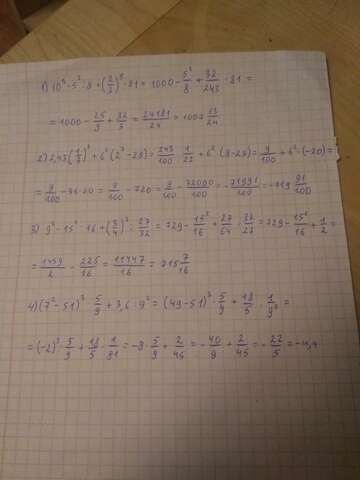 1) 10³ - 5² : 8 + (2/3)⁵ · 81 = 1000 - 5²/8 + 32/243 · 81 =
= 1000 - 25/8 + 32/3 = 24181/24 = 1007 13/24
2) 2,43 · (1/3)³ + 6² · (2³ - 28) = 243/100 · 1/27 + 6² · (8 - 28) = 9/100 + 6² · (-20) =
= 9/100 - 36 · 20 = 9/100 - 720 = 9/100 - 72000/100 = -71991/100 = -719 91/100
3) 9³ - 15² : 16 + (3/4)³ : 27/32 = 729 - 15²/16 + 27/64 · 32/27 = 729 - 15²/16 + 1/2 =
= 1459/2 - 225/16 = 11447/16 = 715 7/16
4) (7² - 51)³ · 5/9 + 3,6 : 9² = (49 - 51)³ · 5/9 + 18/5 · 1/9² =
= (-2)³ · 5/9 + 18/5 · 1/81 = -8 · 5/9 + 2/45 = -40/9 + 2/45 = -22/5 = -4,4